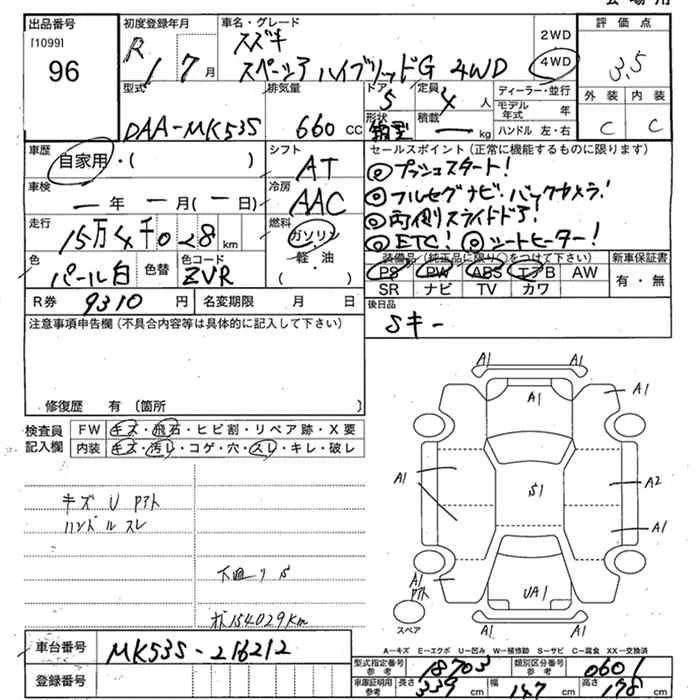 会場用
出品番号
[1099]
96
初度登録年月
R 1 7月
車名・グレード
スズキ
スペーシア ハイブリッドG 4WD
2WD
4WD
評価点
3.5
外装 内装
C C
型式
DAA-MK53S
排気量
660 cc
ドア
5
定員
4人
形状
積載
— kg
ディーラー・並行
モデル年式 年
ハンドル 左・右
車歴
自家用・( )
シフト
AT
車検
—年 —月(—日)
冷房
AAC
走行
15万4千028km
燃料
ガソリン
軽・油
( ・ )
色
パール白
色替
色コード
ZVR
R券 9310円
名変期限 月 日
セールスポイント(正常に機能するものに限ります)
◎プッシュスタート!
◎フルセグナビ・バックカメラ!
◎両側スライドドア!
◎ETC! ◎シートヒーター!
装備品(純正品に限り○をつけて下さい)
PS PW ABS エアB AW
SR ナビ TV カワ
新車保証書
有・無
後日品
Sキー
注意事項申告欄(不具合内容等は具体的に記入して下さい)
修復歴 有 〔箇所
検査員記入欄
FW キズ・飛石・ヒビ割・リペア跡・X要
内装 キズ・汚レ・コゲ・穴・スレ・キレ・破レ
キズ U アト
ハンドル スレ
下廻り S
オド154029km
A1 A1
A1
A1
A1
S1
A2
A1
A1
UA1
A1 A1
スペア
A-キズ E-エクボ U-凹み W-補修跡 S-サビ C-腐食 XX-交換済
車台番号 MK53S-216212
登録番号
型式指定番号 参考 18703
類別区分番号 参考 0601
車庫証明用 参考 長さ 339cm 幅 147cm 高さ 178cm